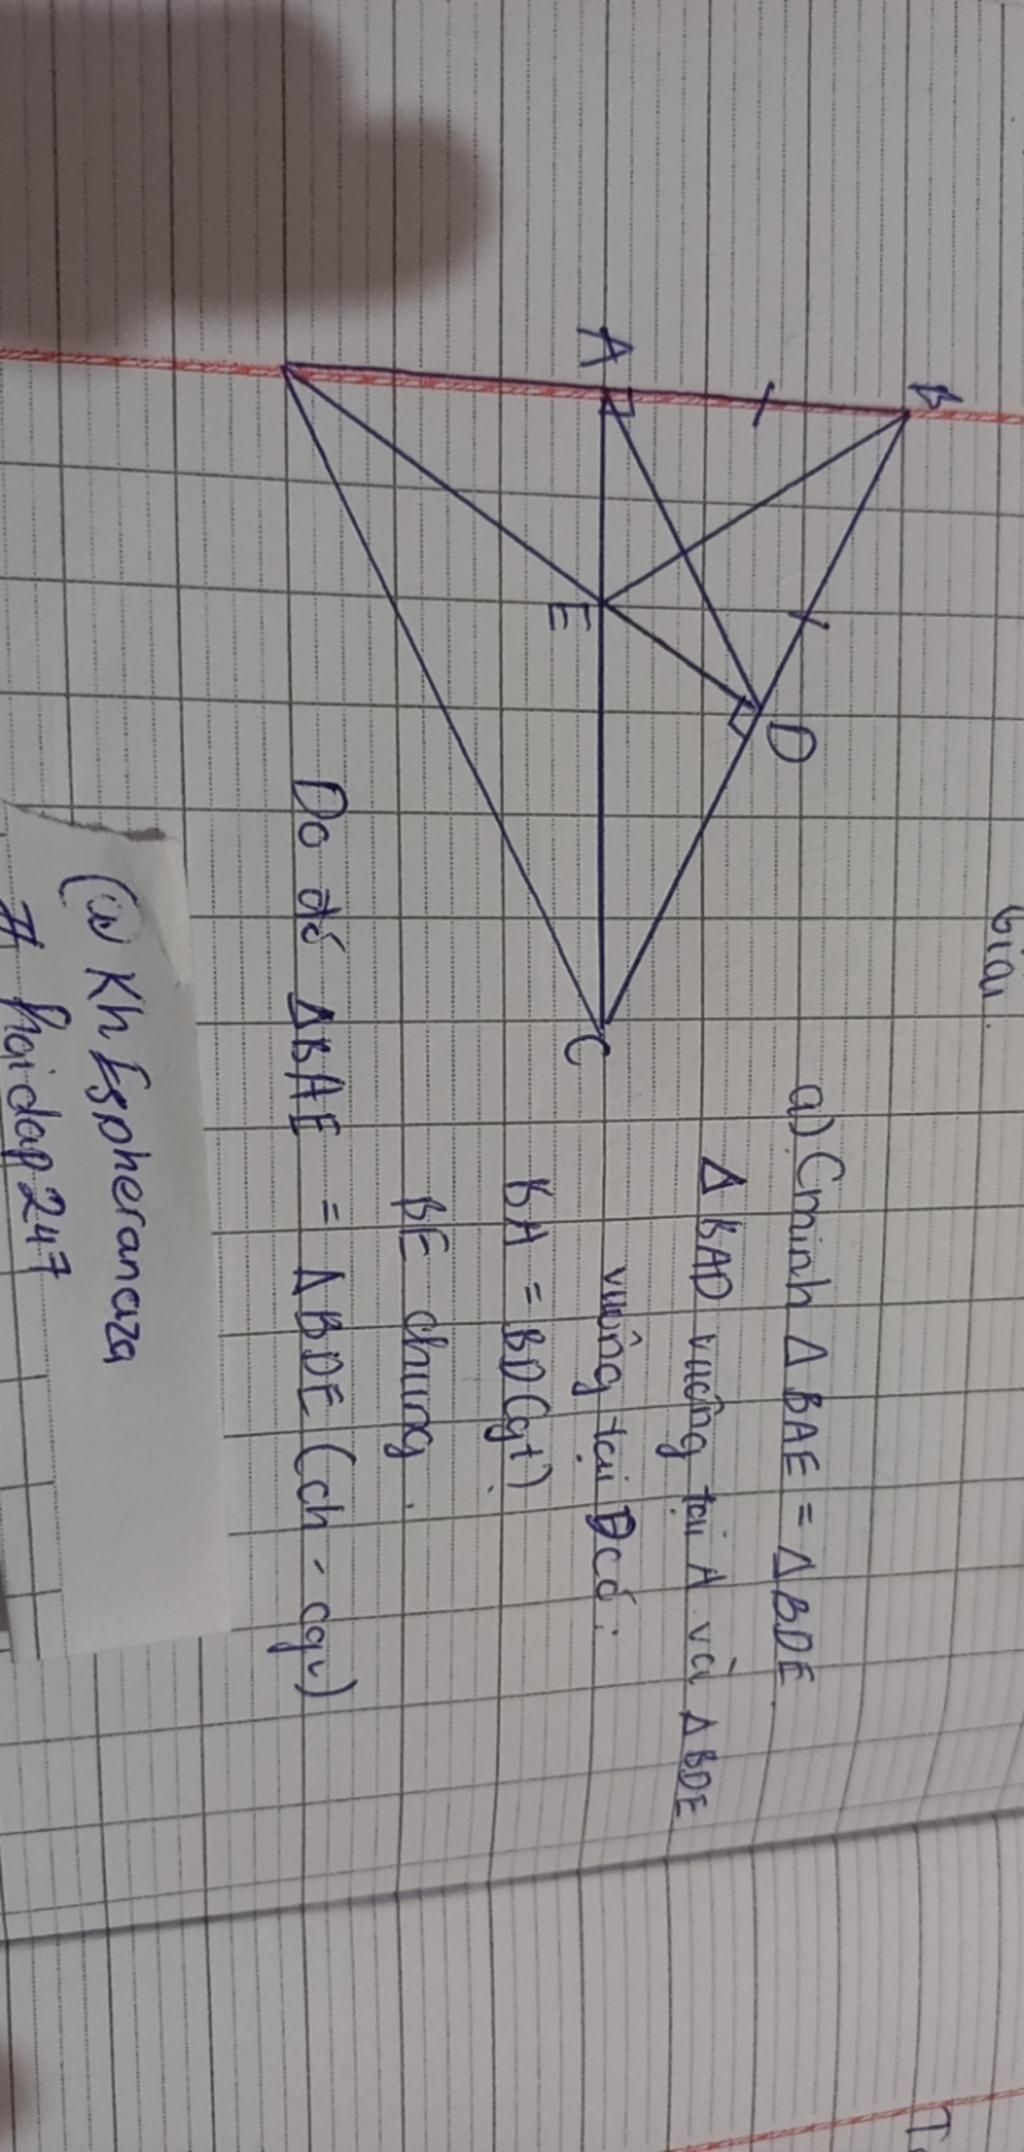 Giải
a) Cminh Δ BAE = Δ BDE
Δ BAD vuông tại A và Δ BDE
vuông tại D có :
BA = BD (gt)
BE chung .
Do đó Δ BAE = Δ BDE ( ch - cgv )
B
A
D
E
C
# hoidap247